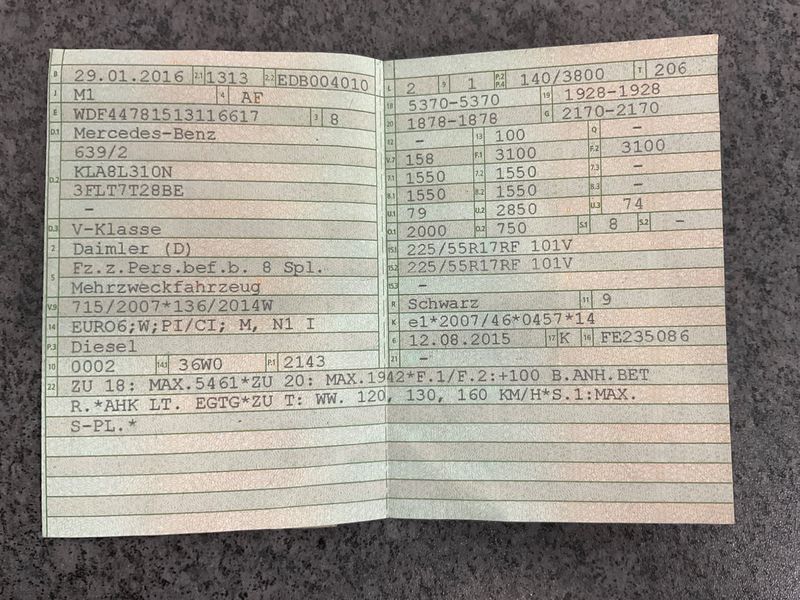 B 29.01.2016 2.1 1313 2.2 EDB004010
J M1 4 AF
E WDF44781513116617 3 8
D.1 Mercedes-Benz
639/2
D.2 KLA8L310N
3FLT7T28BE
–
D.3 V-Klasse
2 Daimler (D)
5 Fz.z.Pers.bef.b. 8 Spl.
Mehrzweckfahrzeug
V.9 715/2007*136/2014W
14 EURO6;W;PI/CI; M, N1 I
P.3 Diesel
10 0002 14.1 36W0 P.1 2143
L 2 9 1 P.2 P.4 140/3800 T 206
18 5370-5370 19 1928-1928
20 1878-1878 G 2170-2170
12 – 13 100 Q –
V.7 158 F.1 3100 F.2 3100
7.1 1550 7.2 1550 7.3 –
8.1 1550 8.2 1550 8.3 –
U.1 79 U.2 2850 U.3 74
O.1 2000 O.2 750 S.1 8 S.2 –
15.1 225/55R17RF 101V
15.2 225/55R17RF 101V
15.3 –
R Schwarz 11 9
K e1*2007/46*0457*14
6 12.08.2015 17 K 16 FE235086
21 –
22 ZU 18: MAX.5461*ZU 20: MAX.1942*F.1/F.2:+100 B.ANH.BET
R.*AHK LT. EGTG*ZU T: WW. 120, 130, 160 KM/H*S.1:MAX.
S-PL.*